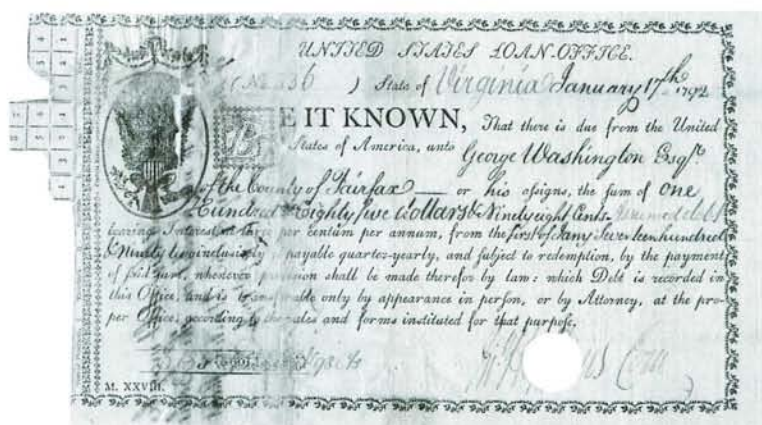 UNITED STATES LOAN-OFFICE.
(No 36 ) State of Virginia January 17th 1792
BE IT KNOWN, That there is due from the United
States of America, unto George Washington Esqr.
of the County of Fairfax — or his assigns, the sum of One
Hundred & Eighty five dollars & Ninety eight Cents
bearing Interest at three per centum per annum, from the first of Jany Seventeen hundred
& Ninety two inclusively payable quarter-yearly, and subject to redemption, by the payment
of said sum, whenever provision shall be made therefor by law: which Debt is recorded in
this Office, and is transferable only by appearance in person, or by Attorney, at the pro-
per Office, according to the rules and forms instituted for that purpose.
98 Cts
M. XXVIII.